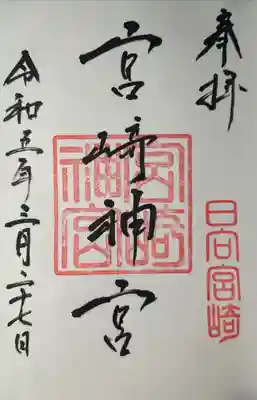 奉拝
日向宮崎
宮崎神宮
宮崎神宮
令和五年三月二十七日